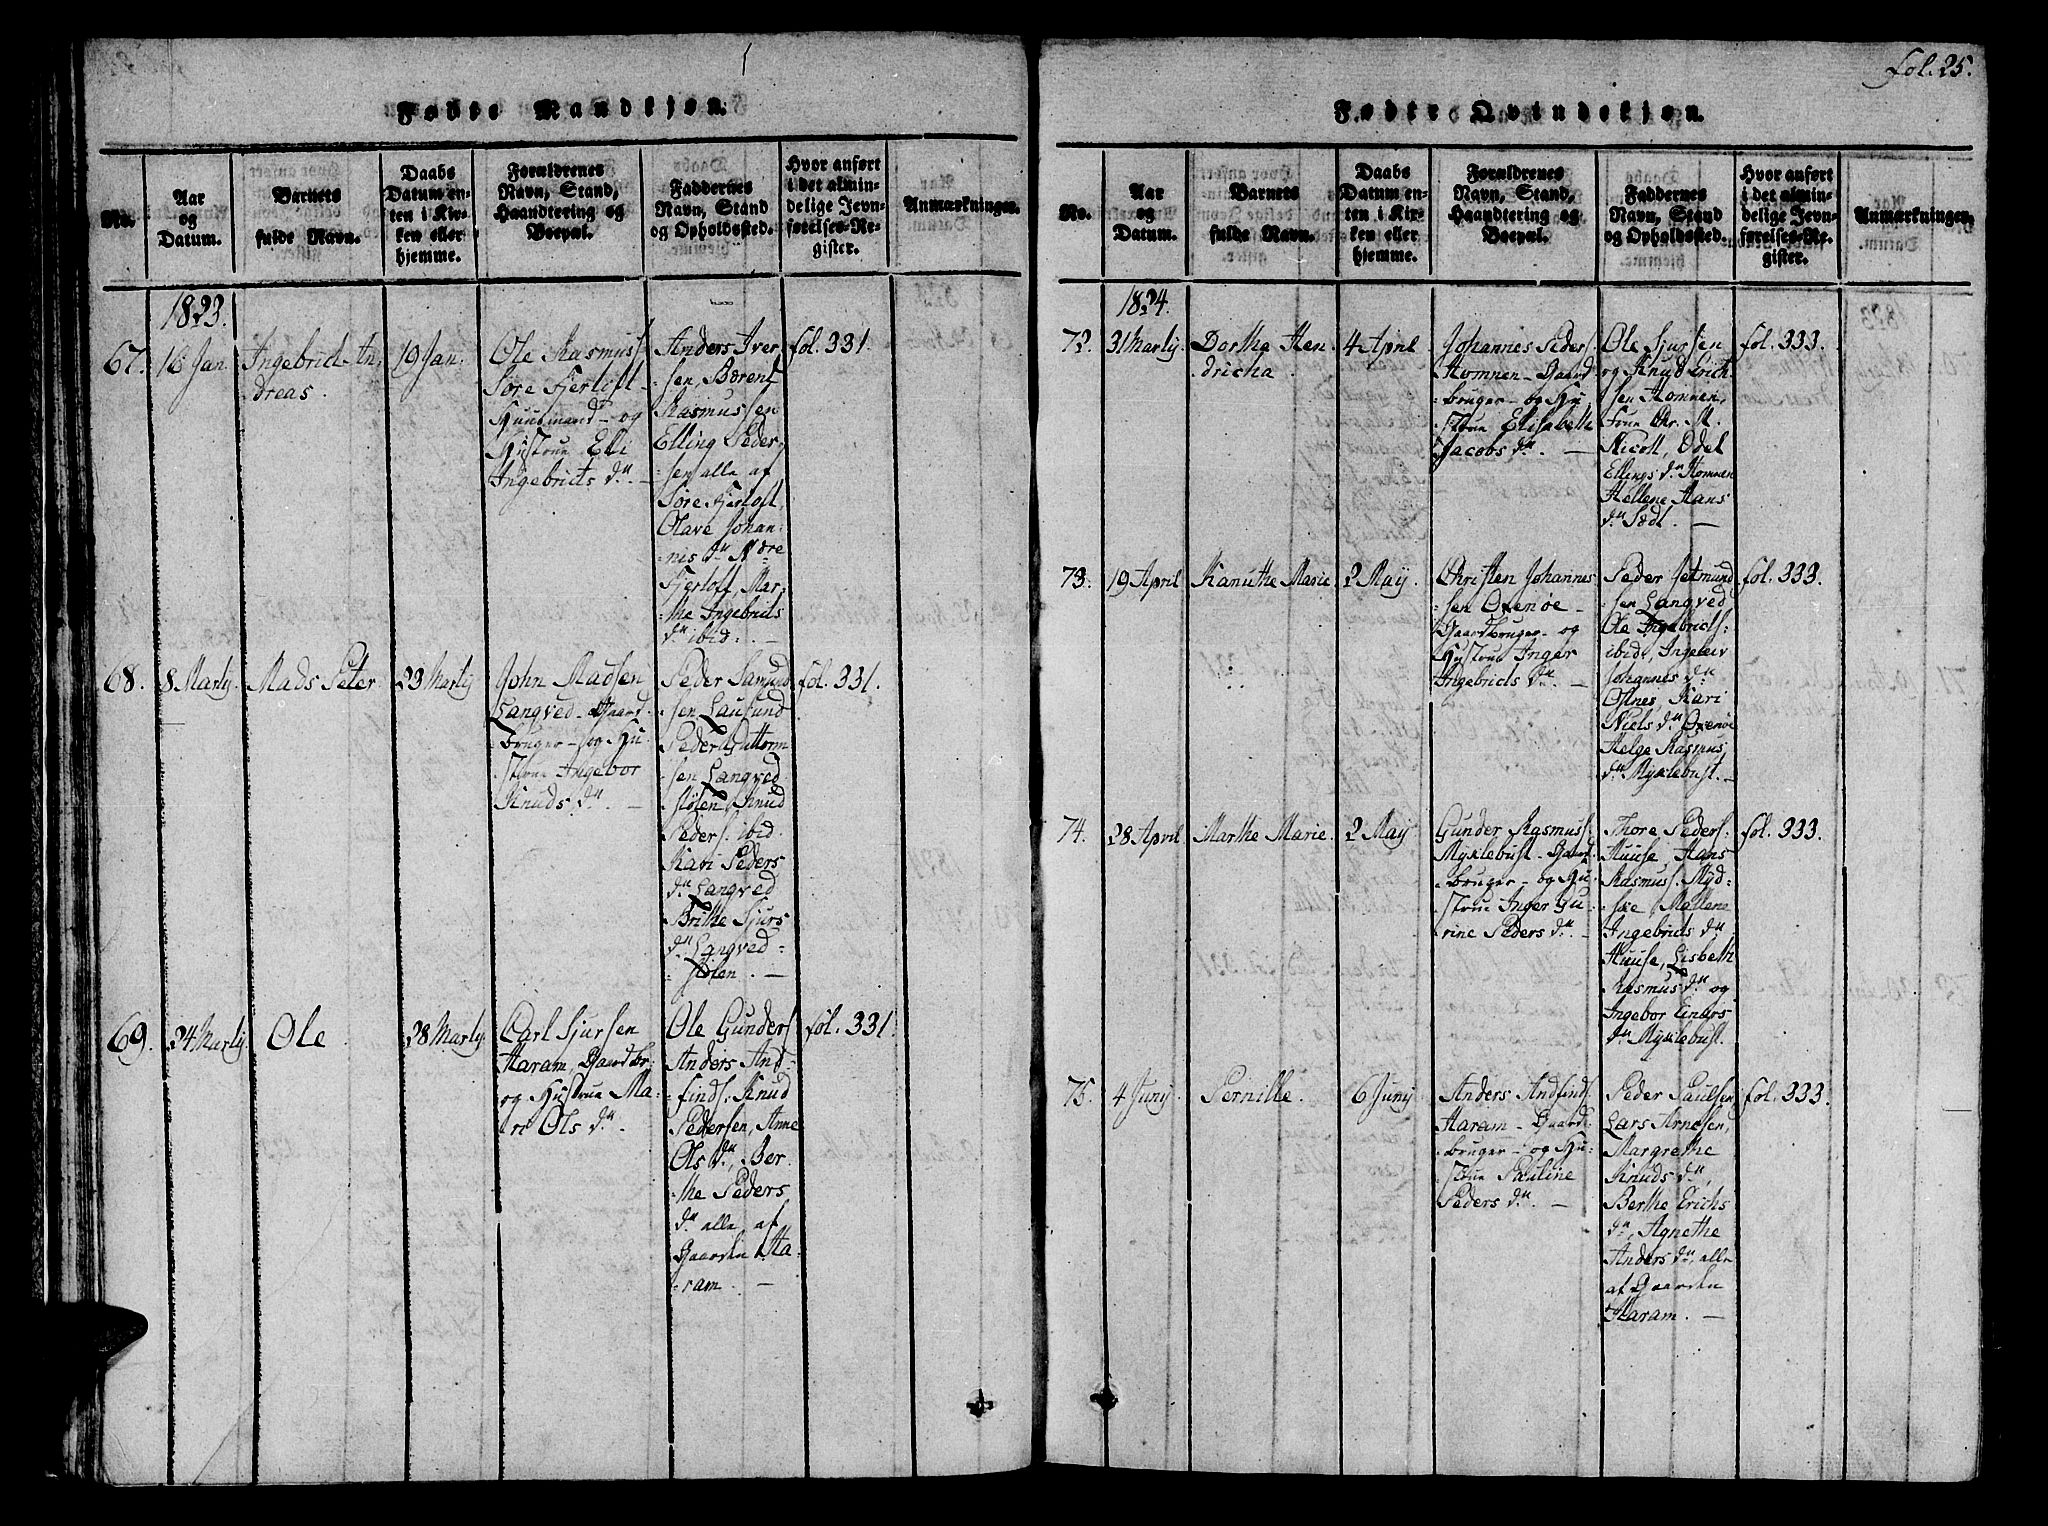 Fødte Mandkjøn.
No.
Aar
og
Datum.
Barnets
fulde Navn.
Daabs
Datum en-
ten i Kir-
ken eller
hjemme.
Forældrenes
Navn, Stand,
Haandtering og
Boepæl.
Faddernes
Navn, Stand
og Opholdssted.
Hvor anført
i det almin-
delige Jevn-
førelses-Re-
gister.
Anmærkninger.
1823.
67.
16 Jan.
Ingebrict An
dreas.
19 Jan.
Ole Rasmuss.
Søre Fjerloft
Huusmand- og
Hystrue Elli
Ingebricts dr. -
Anders Iver
-sen, Bærent
Rasmussen
Elling Peder
-sen alle af
Søre Fjerloft,
Olave Johan-
-nis dr Ndre
Fjerloft, Mar-
-the Ingebricts
dr ibid. -
fol. 331.
68.
8 Martij.
Mads Peter
23 Martij
John Madsen
Langved- Gaard
bruger- og Hu-
strue Ingebor
Knuds dr. -
Peder Samund
-sen Lausund
Peder Guttorm
-sen Langved
-stølen, Knud
Peders. ibid.
Kari Peders
dr Langved
Brithe Sjurs
dr Langved-
-stølen. -
fol. 331.
69.
24 Martij
Ole
28 Martij.
Carl Sjursen
Haram, Gaardbr.
og Hustrue Ma-
-ri Ols dr.
Ole Gunders.
Anders And-
finds. Knud
Pedersen, Anne
Ols dr, Ber-
-the Peders
dr alle af
Gaarden Ha-
-ram. -
fol. 331
fol. 25.
Fødte Qvindekjøn.
No.
Aar
og
Datum.
Barnets
fulde Navn.
Daabs
Datum en-
ten i Kir-
ken eller
hjemme.
Forældrenes
Navn, Stand,
Haandtering og
Boepæl.
Faddernes
Navn, Stand
og Opholdssted.
Hvor anført
i det almin-
delige Jevn-
førelses-Re-
gister.
Anmærkninger.
1824.
72.
31 Martij.
Dorthe Hen
dricha
4 April
Johannes Peders.
Homnen- Gaard
-bruger- og Hu
-strue Elisabeth
Jacobs dr. -
Ole Sjursen
og Knud Erich-
-sen Homnen,
Frue Chr. M.
Nicoll, Odel
Ellings dr Homnen
Hellene Hans
dr Sædt. -
fol. 333.
73.
19 April
Kanuthe Marie
2 Maij.
Christen Johannes
-sen Oxenøe-
Gaardbruger- og
Hystrue Inger
Ingebricts dr. -
Peder Jetmund
-sen Langved
Ole Ingebricts.
ibid., Ingeleiv
Johannes dr
Olsnes, Kari
Niels dr Oxenøe
Helge Rasmus
dr Myklebust. -
fol. 333.
74.
28 April
Marthe Marie.
2 Maij
Gunder Rasmuss.
Myklebust- Gaard
-bruger- og Hu-
-strue Inger Gu-
-rine Peders dr. -
Thore Peders.
Huuse, Hans
Rasmuss. Myd-
-ske, Mallene
Ingebricts dr
Huuse, Lisbeth
Rasmus dr og
Ingebor Einars
dr Myklebust.
fol. 333.
75.
4 Junij.
Pernille.
6 Junij
Anders Andfinds.
Haram- Gaard
bruger- og Hu-
-strue Pauline
Peders dr. -
Peder Paulsen
Lars Arnesen,
Margrethe
Knuds dr,
Berthe Erichs
dr, Agnethe
Anders dr, alle
af Gaarden
Haram. -
fol. 333.